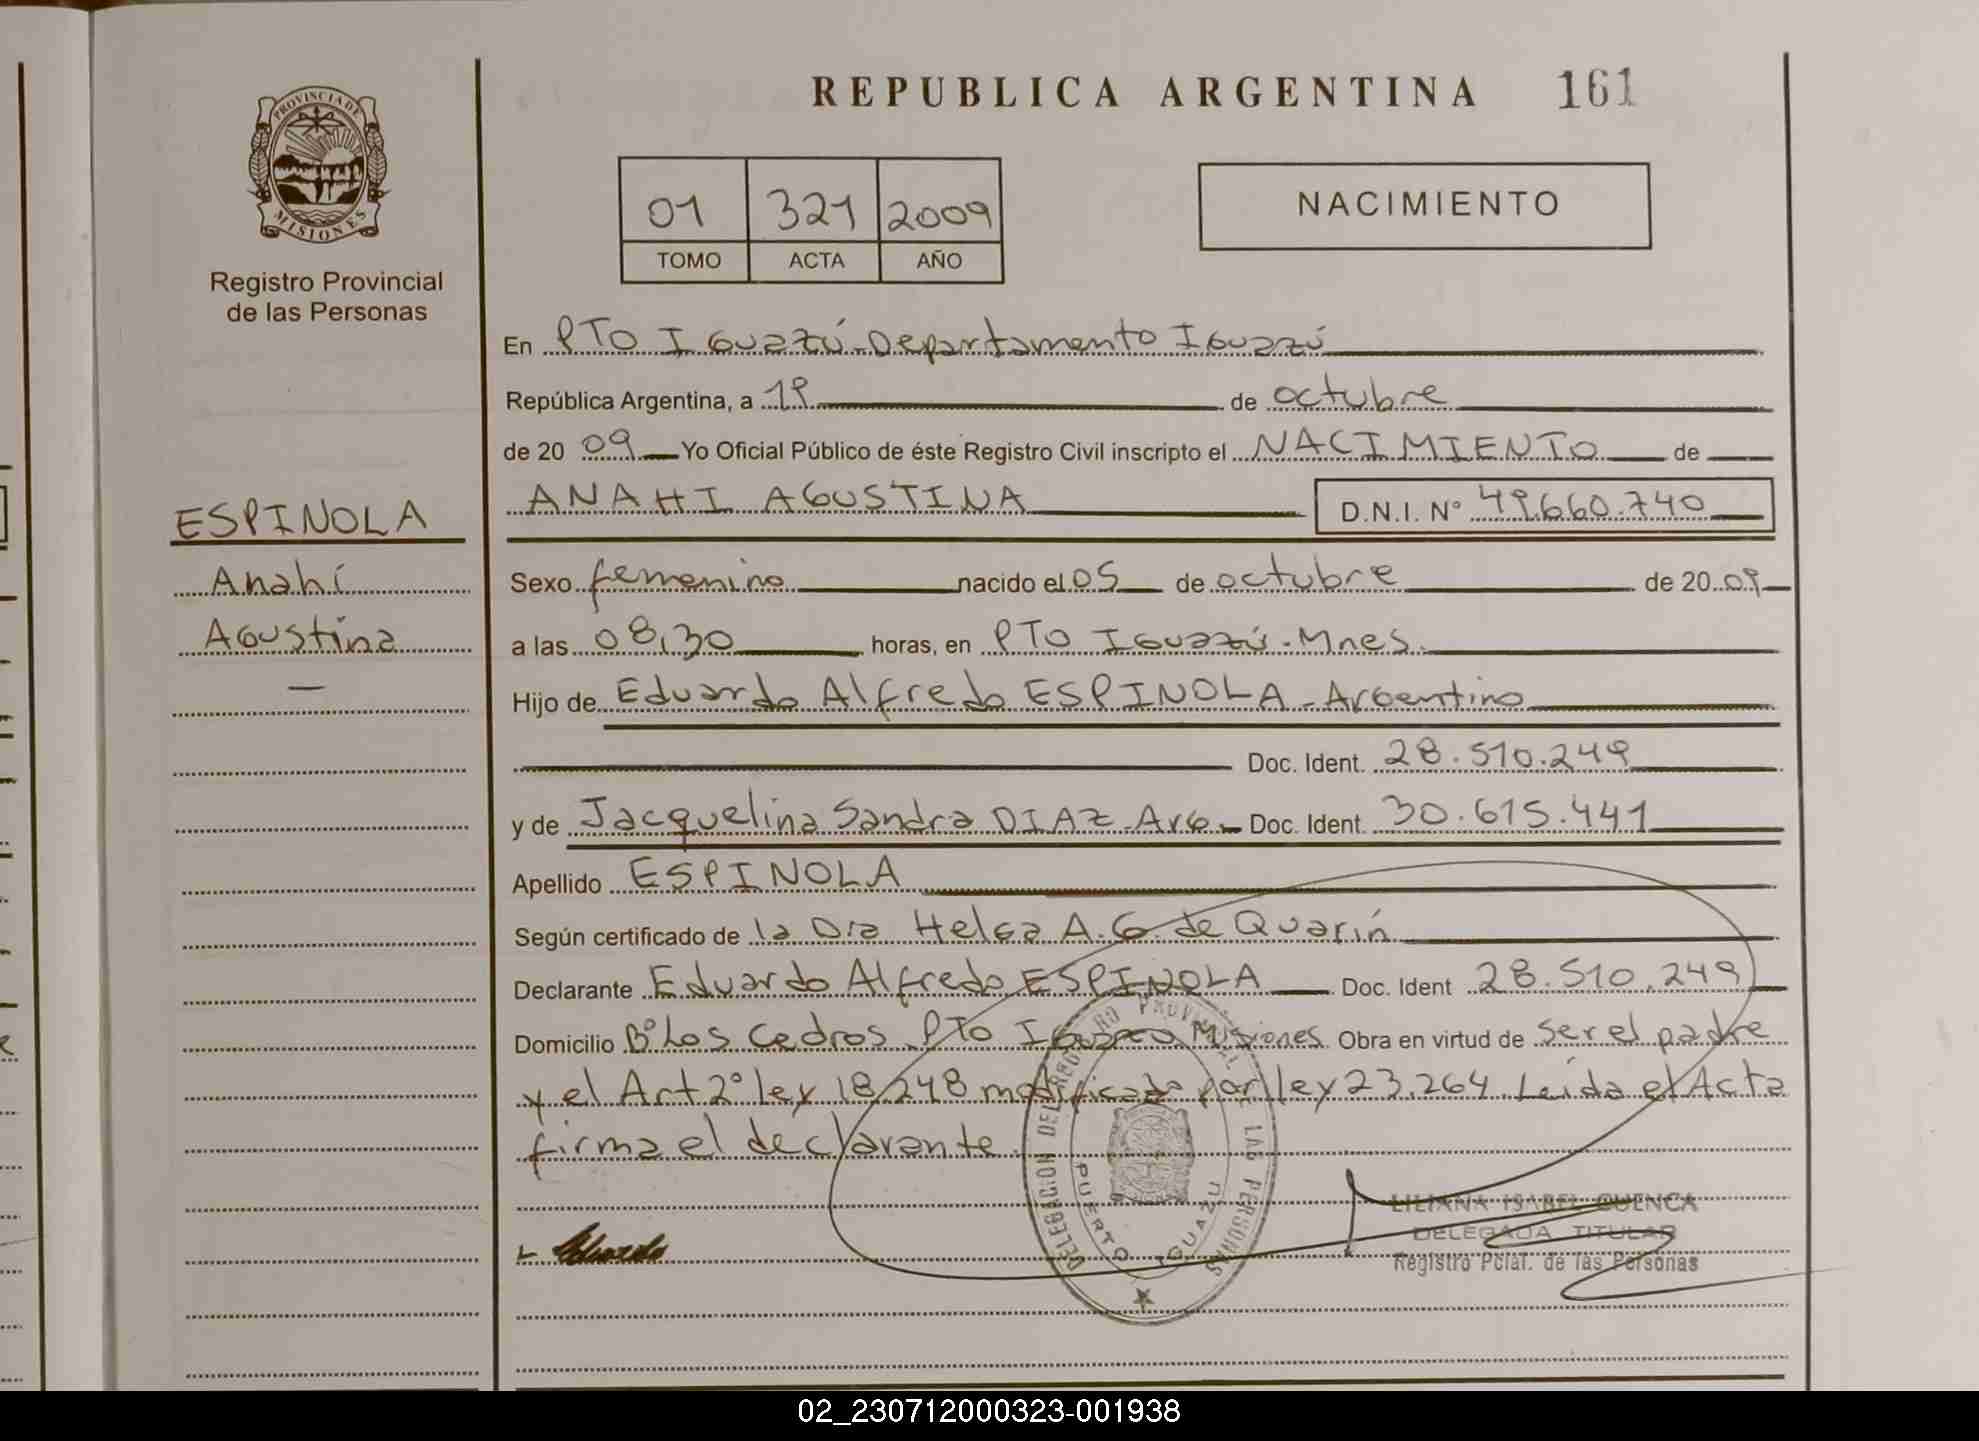 REPUBLICA ARGENTINA 161
PROVINCIA DE MISIONES
Registro Provincial
de las Personas
01 321 2009
TOMO ACTA AÑO
NACIMIENTO
ESPINOLA
Anahí
Agustina
—
En PTO IGuazú-Departamento IGuazú
República Argentina, a 19 de octubre
de 20 09 Yo Oficial Público de éste Registro Civil inscripto el NACIMIENTO de
ANAHI AGUSTINA D.N.I. N° 49.660.740
Sexo femenino nacido el 05 de octubre de 20 09
a las 08,30 horas, en PTO IGuazú-Mnes.
Hijo de Eduardo Alfredo ESPINOLA-Argentino
Doc. Ident. 28.510.249
y de Jacquelina Sandra DIAZ-Arg- Doc. Ident. 30.615.441
Apellido ESPINOLA
Según certificado de la Dra Helga A.G. de Quarín
Declarante Eduardo Alfredo ESPINOLA Doc. Ident 28.510.249
Domicilio B° Los Cedros PTO IGuazú Misiones Obra en virtud de ser el padre
y el Art 2° ley 18.248 modificado por ley 23.264. Leída el Acta
firma el declarante.
DELEGACION DEL REGISTRO PROVINCIAL DE LAS PERSONAS
PUERTO IGUAZU
Eduardo
LILIANA ISABEL CUENCA
DELEGADA TITULAR
Registro Pcial. de las Personas
02_230712000323-001938